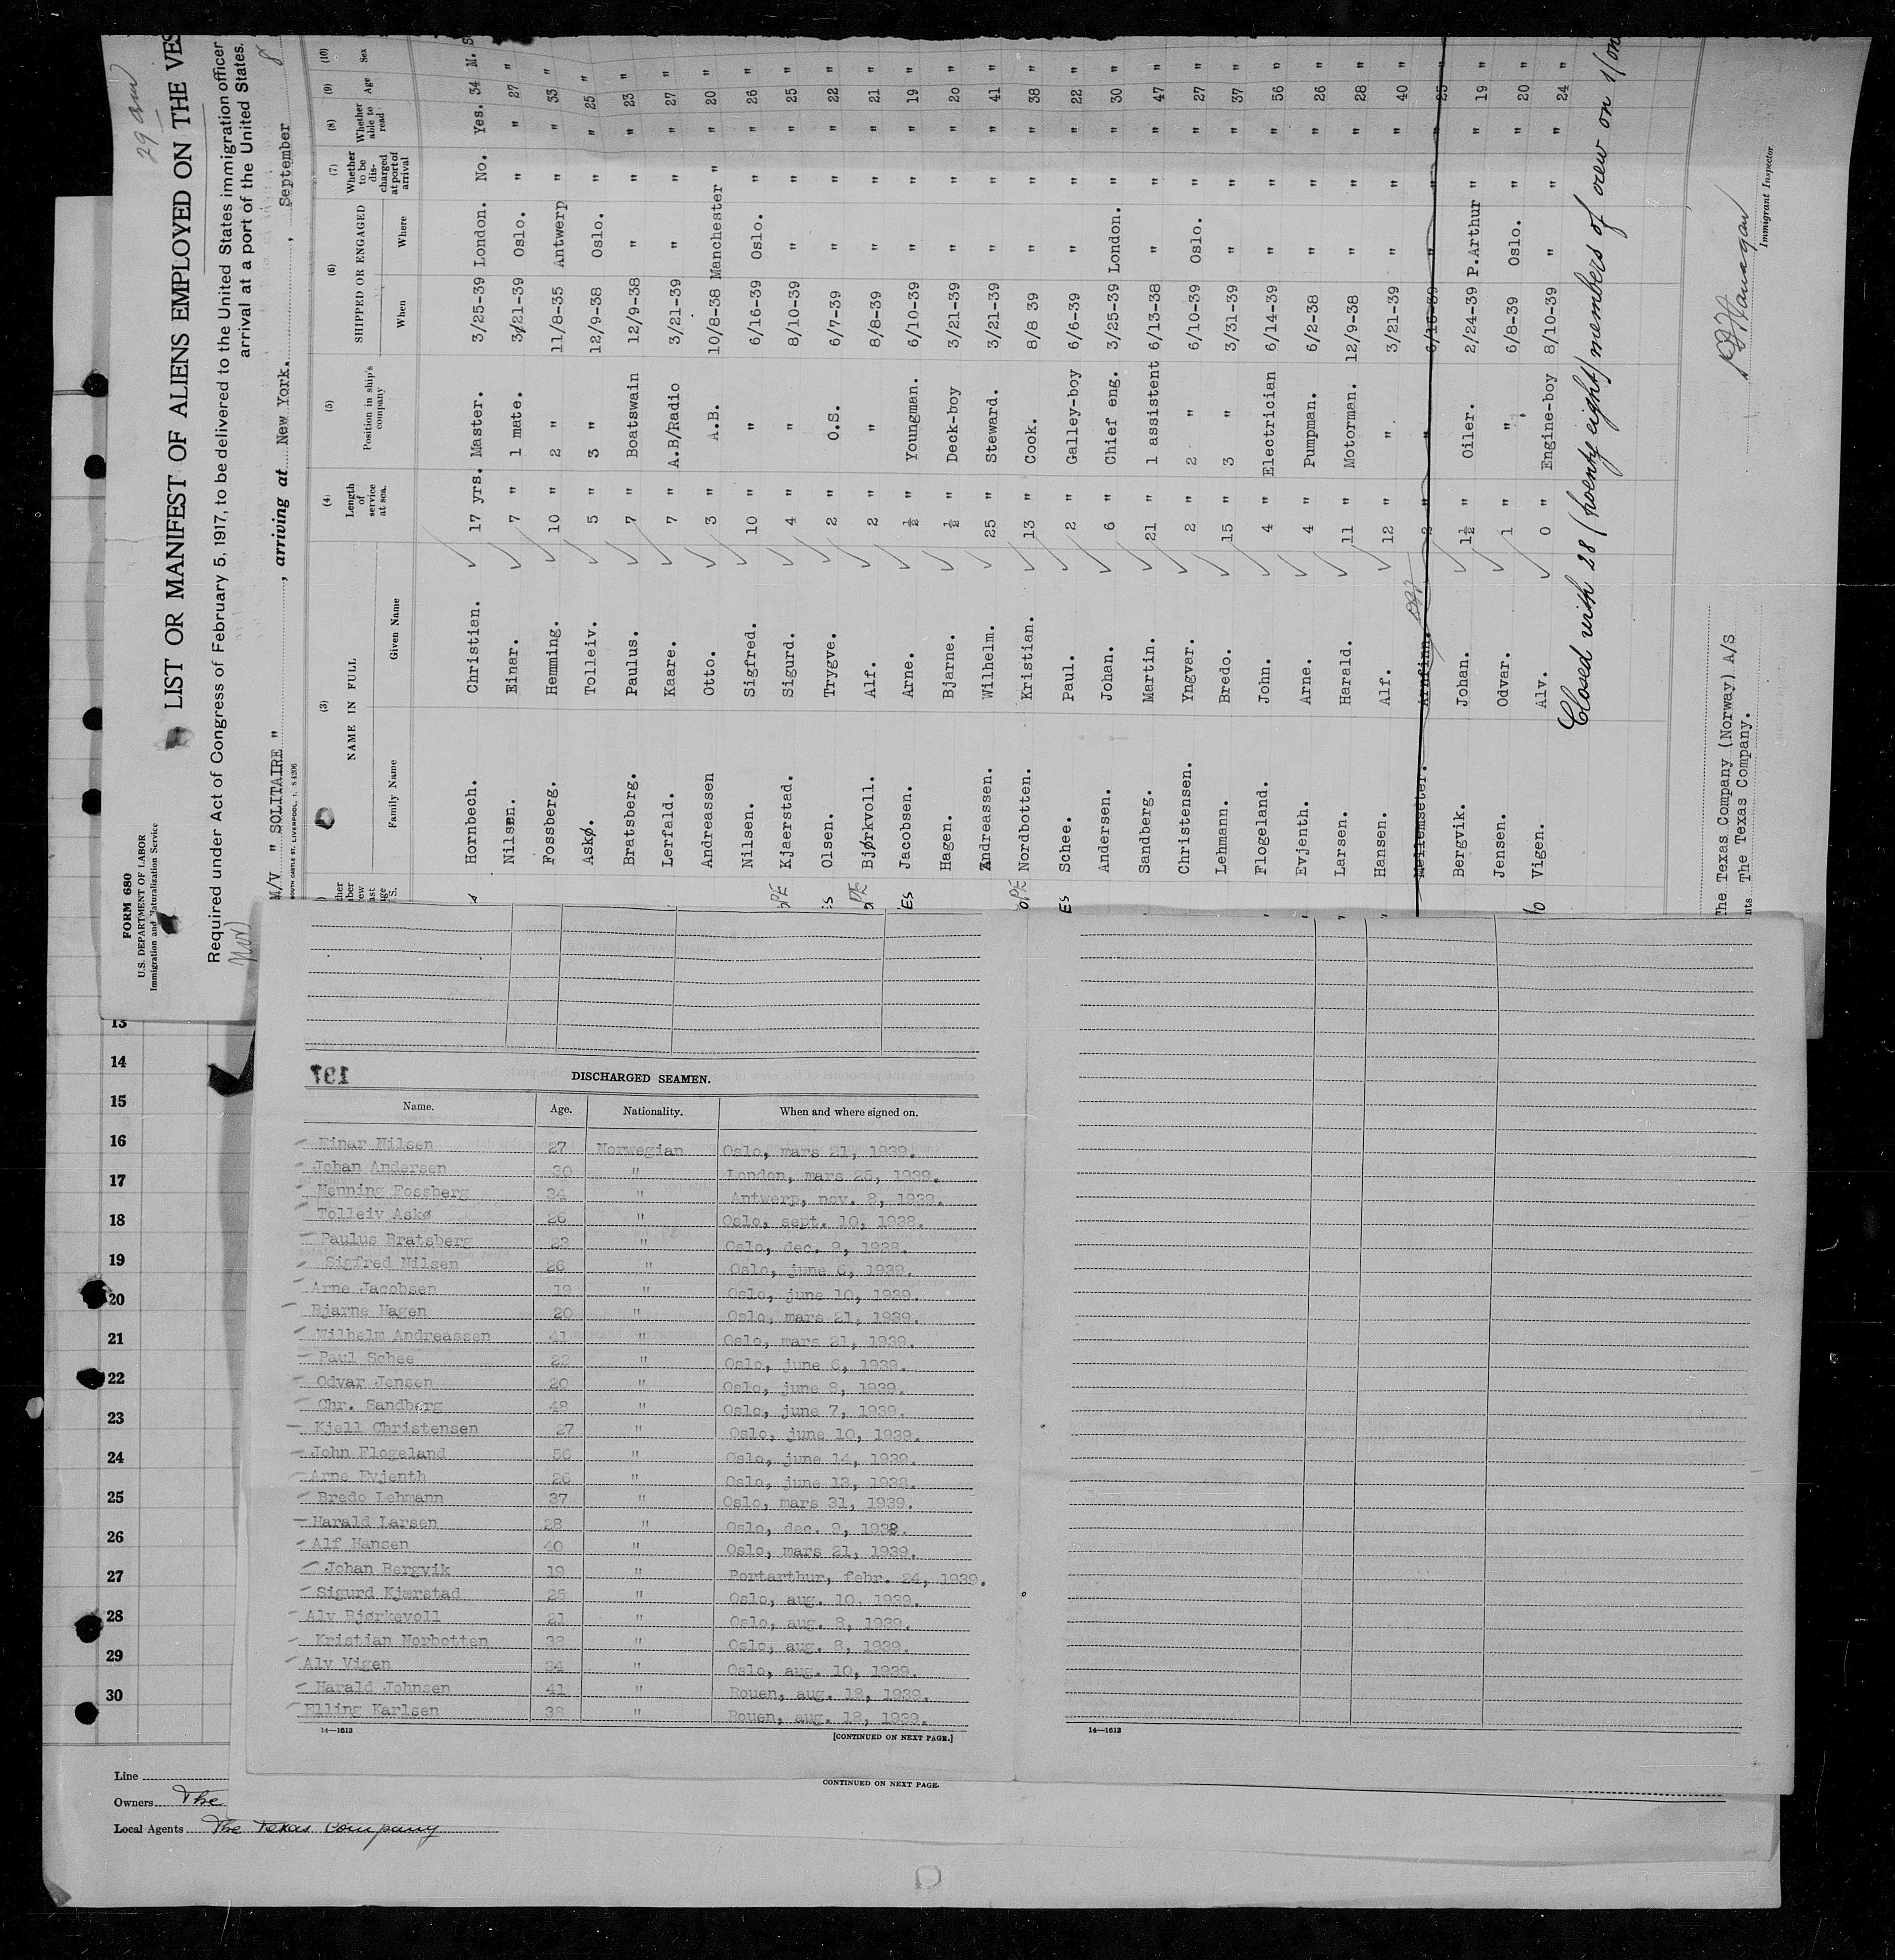 29 am
LIST OR MANIFEST OF ALIENS EMPLOYED ON THE VES
Required under Act of Congress of February 5, 1917, to be delivered to the United States immigration officer
arrival at a port of the United States.
FORM 680
U.S. DEPARTMENT OF LABOR
Immigration and Naturalization Service
M/V " SOLITAIRE " , arriving at New York. , September 8
SOUTH CASTLE ST. LIVERPOOL, 1. S 4206
(3) (4) (5) (6) (7) (8) (9) (10)
NAME IN FULL Length of service at sea. Position in ship's company SHIPPED OR ENGAGED Whether to be discharged at port of arrival Whether able to read Age Sex
Family Name Given Name When Where
Hornbech. Christian. 17 yrs. Master. 3/25-39 London. No. Yes. 34 M.
Nilsen. Einar. 7 " 1 mate. 3/21-39 Oslo. " " 27 "
Fossberg. Hemming. 10 " 2 " 11/8-35 Antwerp " " 33 "
Askø. Tolleiv. 5 " 3 " 12/9-38 Oslo. " " 25 "
Bratsberg. Paulus. 7 " Boatswain 12/9-38 " " " 23 "
Lerfald. Kaare. 7 " A.B/Radio 3/21-39 " " " 27 "
Andreassen Otto. 3 " A.B. 10/8-38 Manchester " " 20 "
Nilsen. Sigfred. 10 " " 6/16-39 Oslo. " " 26 "
Kjaerstad. Sigurd. 4 " " 8/10-39 " " " 25 "
Olsen. Trygve. 2 " O.S. 6/7-39 " " " 22 "
Bjørkvoll. Alf. 2 " " 8/8-39 " " " 21 "
Jacobsen. Arne. ½ " Youngman. 6/10-39 " " " 19 "
Hagen. Bjarne. ½ " Deck-boy 3/21-39 " " " 20 "
Andreassen. Wilhelm. 25 " Steward. 3/21-39 " " " 41 "
Nordbotten. Kristian. 13 " Cook. 8/8 39 " " " 38 "
Schee. Paul. 2 " Galley-boy 6/6-39 " " " 22 "
Andersen. Johan. 6 " Chief eng. 3/25-39 London. " " 30 "
Sandberg. Martin. 21 " 1 assistent 6/13-38 " " " 47 "
Christensen. Yngvar. 2 " 2 " 6/10-39 Oslo. " " 27 "
Lehmann. Bredo. 15 " 3 " 3/31-39 " " " 37 "
Flogeland. John. 4 " Electrician 6/14-39 " " " 56 "
Evjenth. Arne. 4 " Pumpman. 6/2-38 " " " 26 "
Larsen. Harald. 11 " Motorman. 12/9-38 " " " 28 "
Hansen. Alf. 12 " " 3/21-39 " " " 40 "
Arnfinn. 2 " " " " " 25 "
Bergvik. Johan. 1½ " Oiler. 2/24-39 P.Arthur " " 19 "
Jensen. Odvar. 1 " " 6/8-39 Oslo. " " 20 "
Vigen. Alv. 0 " Engine-boy 8/10-39 " " " 24 "
Closed with 28 (twenty eight) members of crew on
Immigrant Inspector
The Texas Company (Norway) A/S
The Texas Company.
13
14
15
16
17
18
19
20
21
22
23
24
25
26
27
28
29
30
DISCHARGED SEAMEN.
Name. Age. Nationality. When and where signed on.
Einar Nilsen 27 Norwegian Oslo, mars 21, 1939.
Johan Andersen 30 " London, mars 25, 1939.
Henning Fossberg 34 " Antwerp, nov. 8, 1939.
Tolleiv Askø 26 " Oslo, sept. 10, 1938.
Paulus Bratsberg 23 " Oslo, dec. 9, 1938.
Sigfred Nilsen 26 " Oslo, june 6, 1939.
Arne Jacobsen 19 " Oslo, june 10, 1939.
Bjarne Hagen 20 " Oslo, mars 21, 1939.
Wilhelm Andreassen 41 " Oslo, mars 21, 1939.
Paul Schee 22 " Oslo, june 6, 1939.
Odvar Jensen 20 " Oslo, june 8, 1939.
Chr. Sandberg 48 " Oslo, june 7, 1939.
Kjell Christensen 27 " Oslo, june 10, 1939.
John Flogeland 56 " Oslo, june 14, 1939.
Arne Evjenth 26 " Oslo, june 13, 1938.
Bredo Lehmann 37 " Oslo, mars 31, 1939.
Harald Larsen 28 " Oslo, dec. 9, 1938.
Alf Hansen 40 " Oslo, mars 21, 1939.
Johan Bergvik 19 " Portarthur, febr. 24, 1939.
Sigurd Kjærstad 25 " Oslo, aug. 10, 1939.
Alv Bjørkevoll 21 " Oslo, aug. 8, 1939.
Kristian Norbotten 38 " Oslo, aug. 8, 1939.
Alv Vigen 24 " Oslo, aug. 10, 1939.
Harald Johnsen 41 " Rouen, aug. 18, 1939.
Elling Karlsen 38 " Rouen, aug. 18, 1939.
14—1613
[CONTINUED ON NEXT PAGE.]
14—1613
CONTINUED ON NEXT PAGE.
Line
Owners The
Local Agents The Texas Company